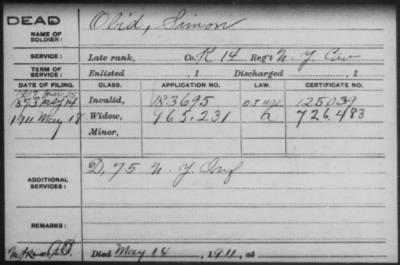 DEAD
NAME OF SOLDIER: Obid, Simon
SERVICE: Late rank, Co. K 14 Reg't N. Y. Cav
TERM OF SERVICE: Enlisted , 1 Discharged , 1
DATE OF FILING. CLASS. APPLICATION NO. LAW. CERTIFICATE NO.
1873 May 14 Invalid, 183695 125039
1911 May 18 Widow, 963,231 a 726,483
Minor,
ADDITIONAL SERVICES: D, 75 N. Y. Inf
REMARKS:
Died May 14, 1911, at